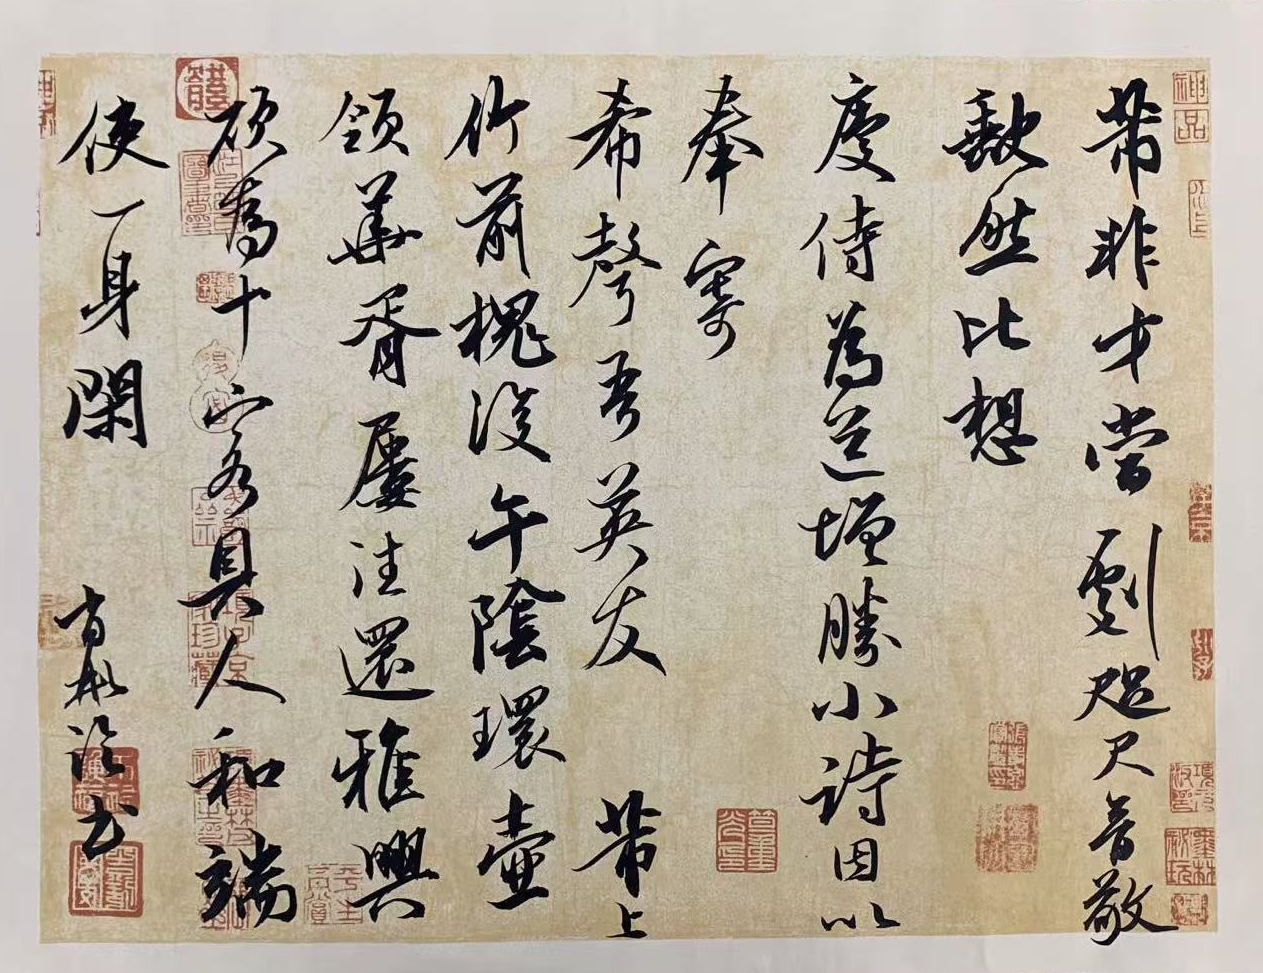 芾非才當劇咫尺音敬
缺然比想
慶侍為道增勝小詩因以
奉寄
希聲吾英友 芾上
竹前槐後午陰環壺
領華胥屢往還雅興
欲為十客具人和端
使一身閑
書
神品